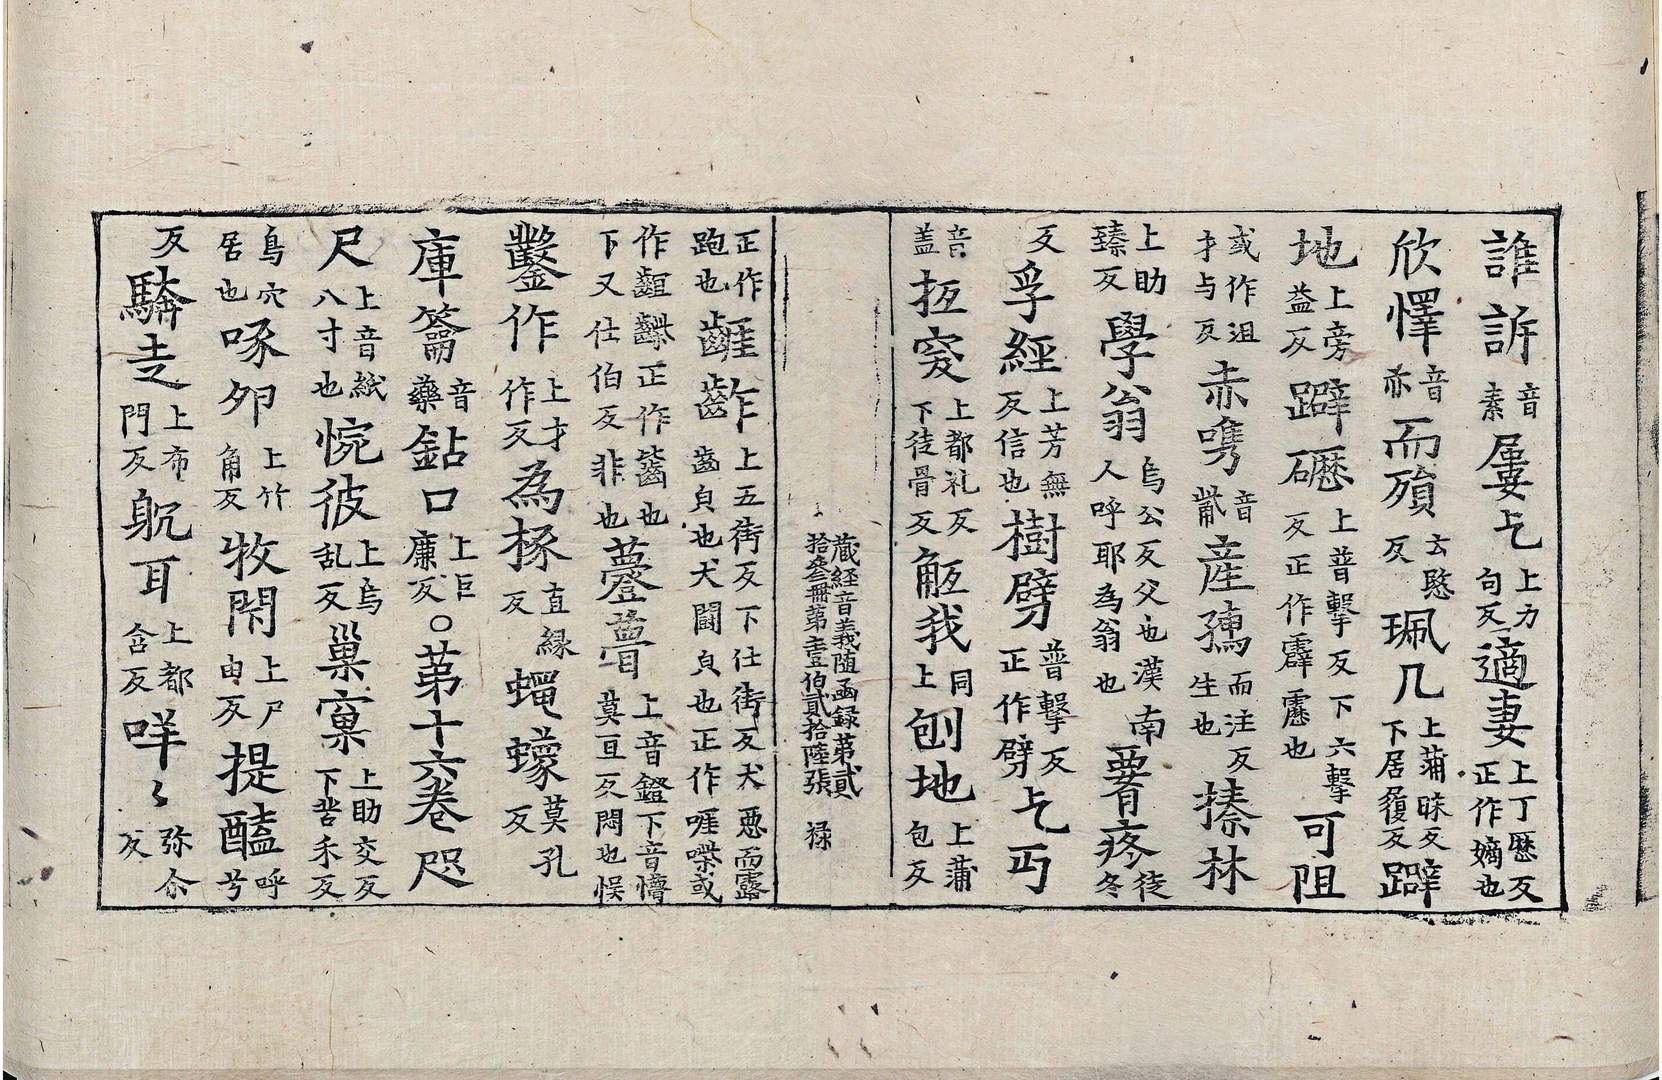 誰訴音素屢乞上力句反適妻上丁歷反正作嫡也
欣懌音亦而殞云愍反珮几上蒲昧反下居履反躃
地上旁益反躃礰上普擊反下六擊反正作霹靂也可阻
或作沮才与反赤嘴音觜産㹨而注反生也搸林
上助臻反學翁烏公反父也漢南人呼耶為翁也要脊疼徒冬
反孚經上芳無反信也樹劈普擊反正作劈乞丐
音盖抵突上都礼反下徒骨反觝我同上刨地上蒲包反
藏経音義随函録第貳拾叄冊第壹伯貳拾陸張 禄
正作跑也齜齚上五街反下仕街反犬惡而露齒皃也犬鬬皃也正作啀喍或
作齜齽正作齹也下又仕伯反非也薹瞢上音鐙下音懵莫亘反悶也悮
鑿作上才作反為椽直緣反蠅蠓莫孔反
庫籥音藥鉆口上巨廉反○第十六卷咫
尺上音紙八寸也惋彼上烏乱反巢窠上助交反下苦禾反
鳥穴居也啄夘上竹角反牧閑上尸由反提醯呼兮
反驞走上布門反躭耳上都含反咩〻弥尒反